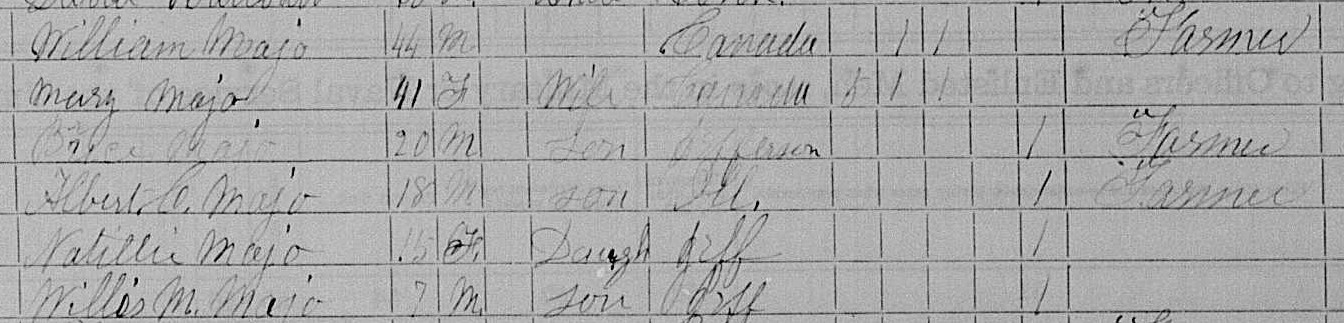 William Majo 44 M Canada 1 1 Farmer
Mary Majo 41 F Wife Canada 5 1 1
Majo 20 M Son Jefferson 1 " Farmer
Albert C. Majo 18 M Son Ill. 1 " Farmer
Natillie Majo 15 F. Daugh Jeff 1
Willis M. Majo 7 M. Son Jeff 1